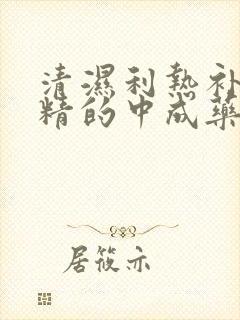 清濕利熱补
精的中成藥
居筱亦